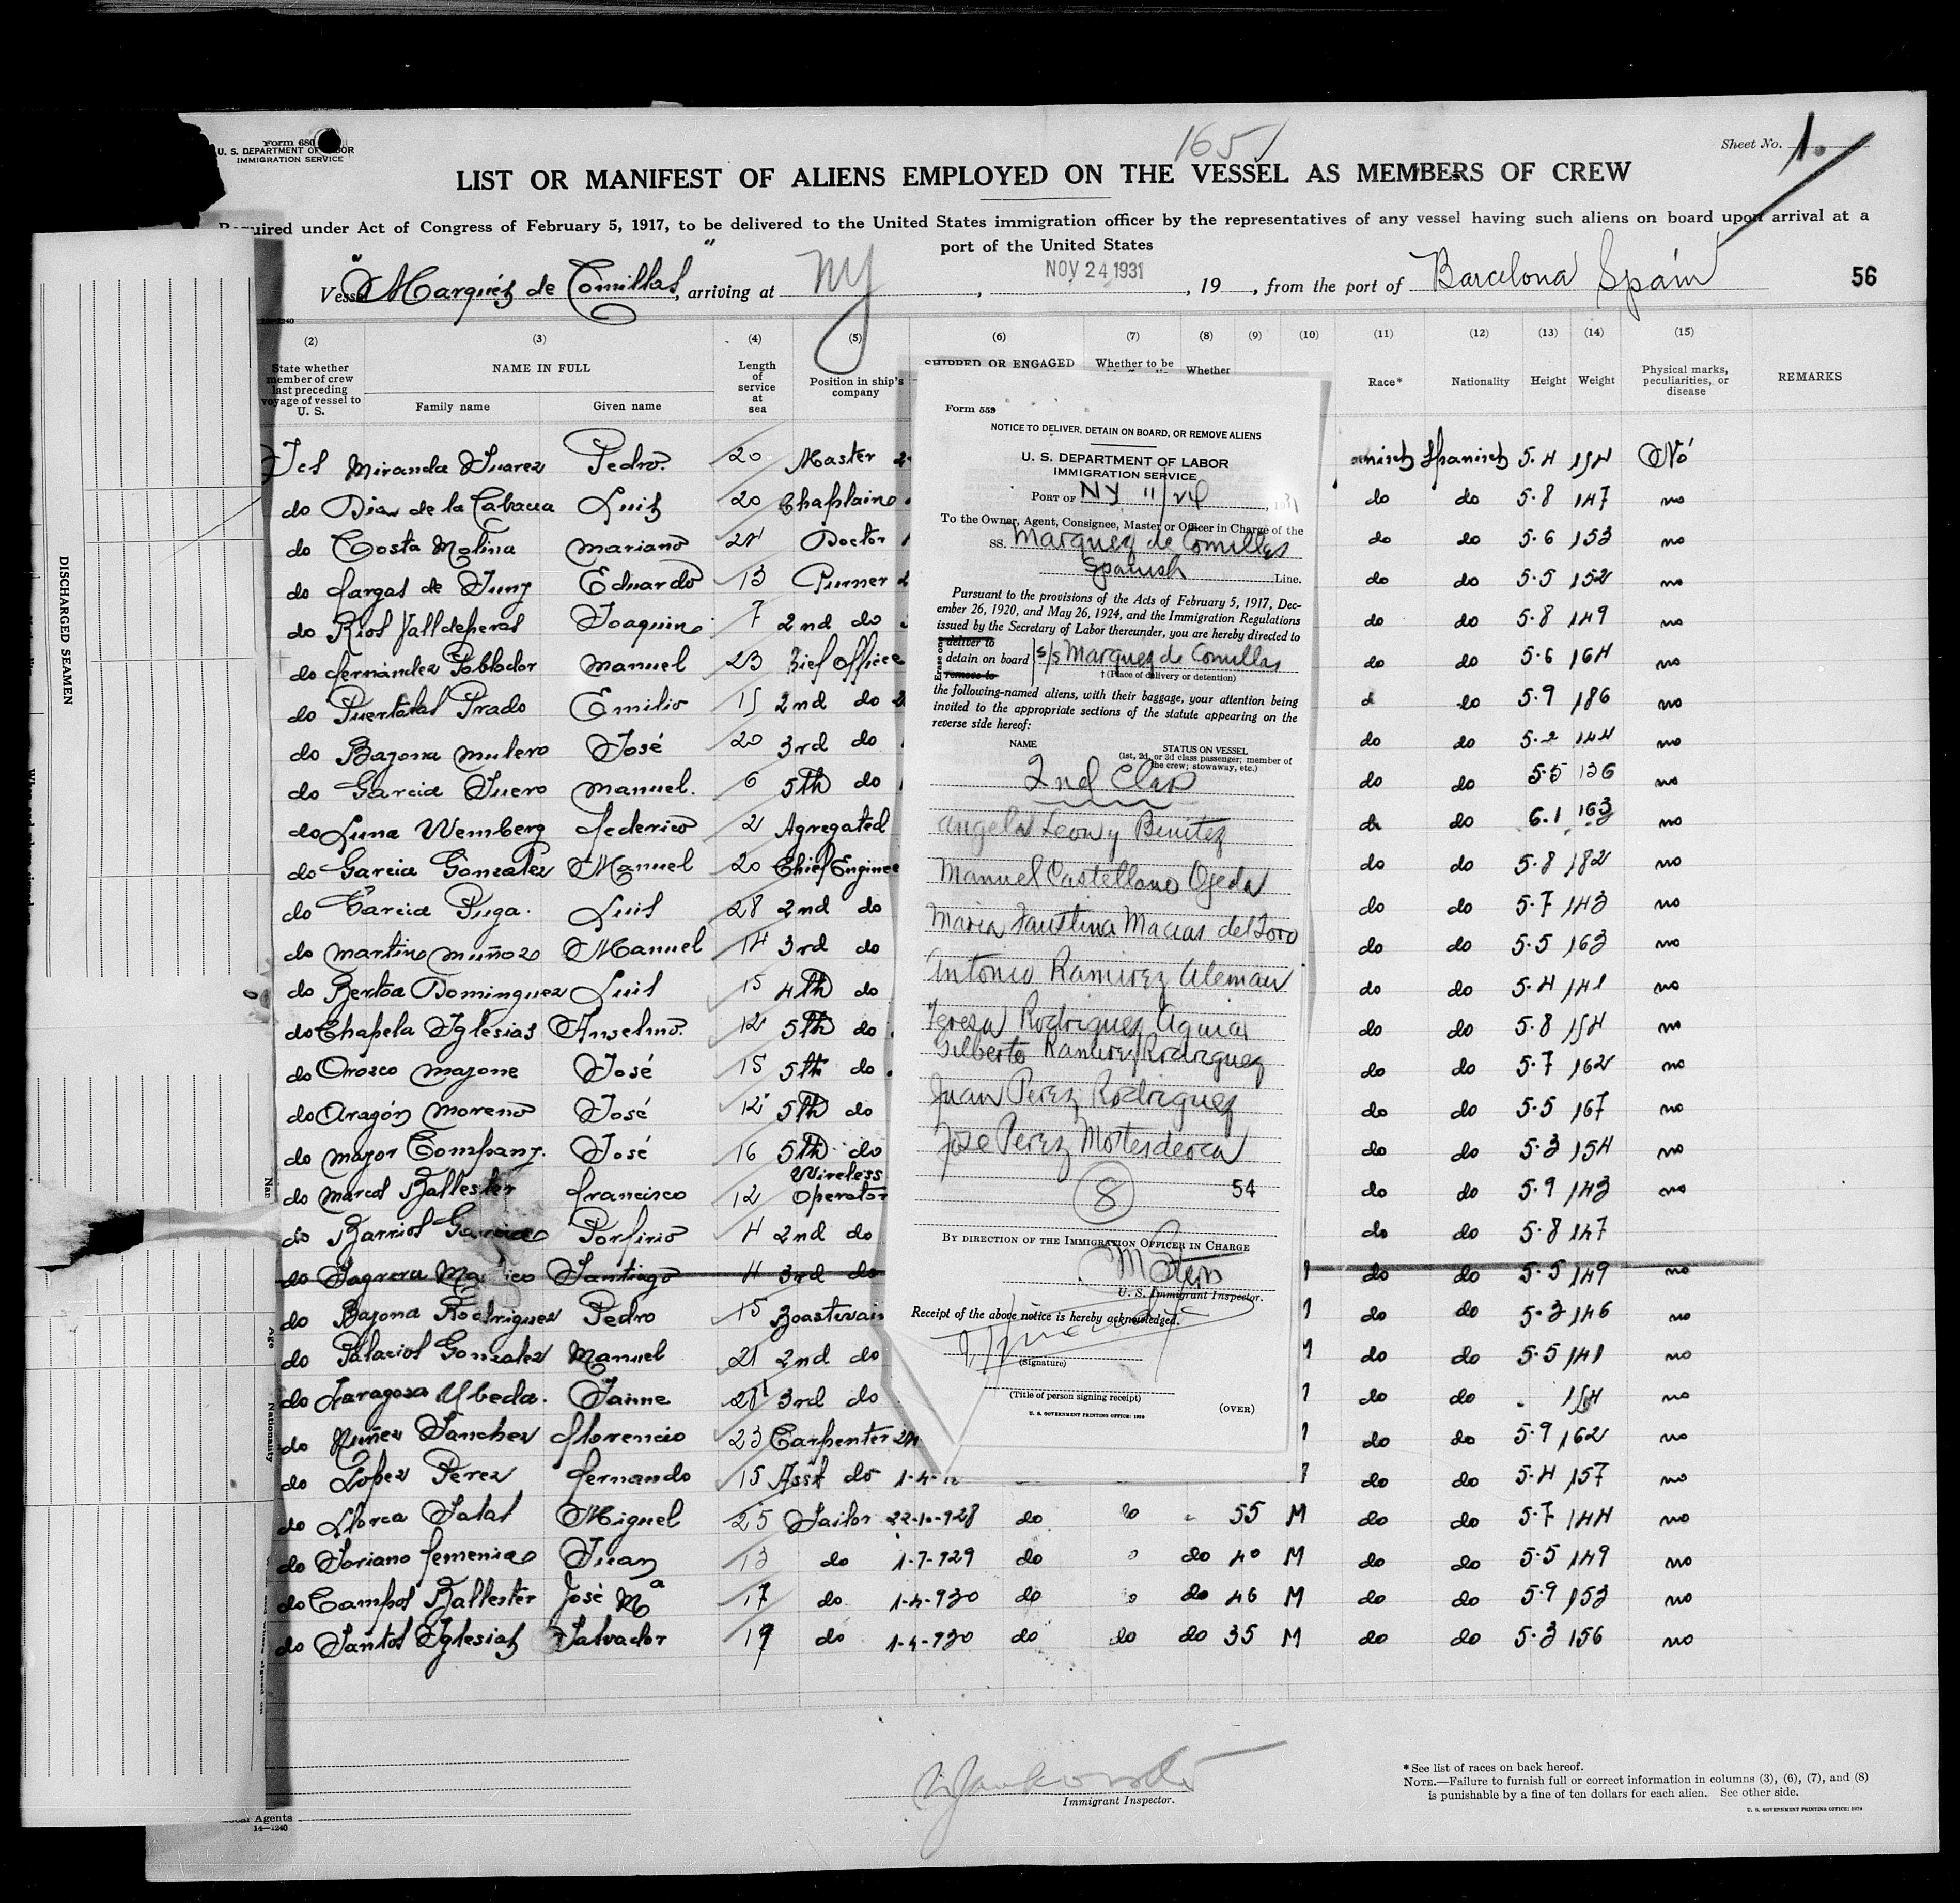 Form 680
U. S. DEPARTMENT OF LABOR
IMMIGRATION SERVICE
1651
Sheet No. 1.
LIST OR MANIFEST OF ALIENS EMPLOYED ON THE VESSEL AS MEMBERS OF CREW
Required under Act of Congress of February 5, 1917, to be delivered to the United States immigration officer by the representatives of any vessel having such aliens on board upon arrival at a
port of the United States
Vessel "Marqués de Comillas", arriving at NY, NOV 24 1931, 19 , from the port of Barcelona Spain 56
(2) (3) (4) (5) (6) (7) (8) (9) (10) (11) (12) (13) (14) (15)
State whether member of crew last preceding voyage of vessel to U. S.
NAME IN FULL
Family name Given name
Length of service at sea
Position in ship's company
SHIPPED OR ENGAGED
Whether to be
Whether
Race* Nationality Height Weight
Physical marks, peculiarities, or disease
REMARKS
Miranda Suarez Pedro. 20 Master Spanish 5.4 154 No
do de la Luis 20 Chaplain do do 5.8 147 no
do Costa Molina Mariano 24 Doctor do do 5.6 153 no
do Eduardo 13 do do 5.5 152 no
do Rios Valldeperas Joaquin 7 2nd do do do 5.8 149 no
do Fernandez Poblador Manuel 23 office do do 5.6 164 no
do Prado Emilio 15 2nd do do 5.9 186 no
do Bayona Mulero José 20 3rd do do do 5.2 144 no
do Garcia Suero Manuel. 6 5th do do do 5.5 136 no
do Luna Wemberg Federico 2 Agregated do do 6.1 163 no
do Garcia Gonzalez Manuel 20 Chief Enginee do do 5.8 182 no
do Garcia Puga. Luis 28 2nd do do do 5.7 143 no
do Martin Muñoz Manuel 14 3rd do do do 5.5 163 no
do Bertoa Dominguez Luis 15 4th do do do 5.4 141 no
do Chapela Iglesias Anselmo. 12 5th do do do 5.8 154 no
do Orosco Mayone José 15 5th do do do 5.7 162 no
do Aragón Moreno José 12 5th do do do 5.5 167 no
do Mayor Company. José 16 5th do do do 5.3 154 no
do Marcos Ballester Francisco 12 Wireless Operator do do 5.9 143 no
do Barrios Garcia Porfirio 4 2nd do do do 5.8 147
do Sagrera Santiago 4 3rd do do do 5.5 149 no
do Bayona Rodriguez Pedro 15 do do 5.3 146 no
do Palacios Gonzalez Manuel 21 2nd do do do 5.5 141 no
do Zaragosa Ubeda. Jaime 21 3rd do do do 154 no
do Nuñez Sanchez Florencio 23 Carpenter do do 5.9 162 no
do Lopez Perez Fernando 15 Asst do do do 5.4 157 no
do Llorca Salas Miguel 25 Sailor 22-10-928 do 55 M do do 5.7 144 no
do Soriano Femenias Juan 13 do 1-7-929 do do 40 M do do 5.5 149 no
do Campos Ballester José Mª 17 do 1-4-930 do do 46 M do do 5.9 153 no
do Santos Iglesias Salvador 19 do 1-4-930 do do do 35 M do do 5.3 156 no
Immigrant Inspector.
*See list of races on back hereof.
NOTE.—Failure to furnish full or correct information in columns (3), (6), (7), and (8)
is punishable by a fine of ten dollars for each alien. See other side.
U. S. GOVERNMENT PRINTING OFFICE: 1929
Agents
14—1240
DISCHARGED SEAMEN
Age
Nationality
Form 559
NOTICE TO DELIVER, DETAIN ON BOARD, OR REMOVE ALIENS
U. S. DEPARTMENT OF LABOR
IMMIGRATION SERVICE
PORT OF NY 11/24, 1931
To the Owner, Agent, Consignee, Master or Officer in Charge of the
SS. Marquez de Comillas
Spanish Line.
Pursuant to the provisions of the Acts of February 5, 1917, Dec-
ember 26, 1920, and May 26, 1924, and the Immigration Regulations
issued by the Secretary of Labor thereunder, you are hereby directed to
Erase one
deliver to
detain on board
remove to
s/s Marquez de Comillas
† (Place of delivery or detention)
the following-named aliens, with their baggage, your attention being
invited to the appropriate sections of the statute appearing on the
reverse side hereof:
NAME
STATUS ON VESSEL
(1st, 2d, or 3d class passenger; member of
the crew; stowaway, etc.)
2nd Class
Angela Leon y Benitez
Manuel Castellano Ojeda
Maria Faustina Macias del Toro
Antonio Ramirez Aleman
Teresa Rodriguez Aguiar
Gilberto Ramirez Rodriguez
Juan Perez Rodriguez
Jose Perez
8 54
BY DIRECTION OF THE IMMIGRATION OFFICER IN CHARGE
M Stern
U. S. Immigrant Inspector.
Receipt of the above notice is hereby acknowledged.
(Signature)
(Title of person signing receipt)
U. S. GOVERNMENT PRINTING OFFICE: 1929
(OVER)